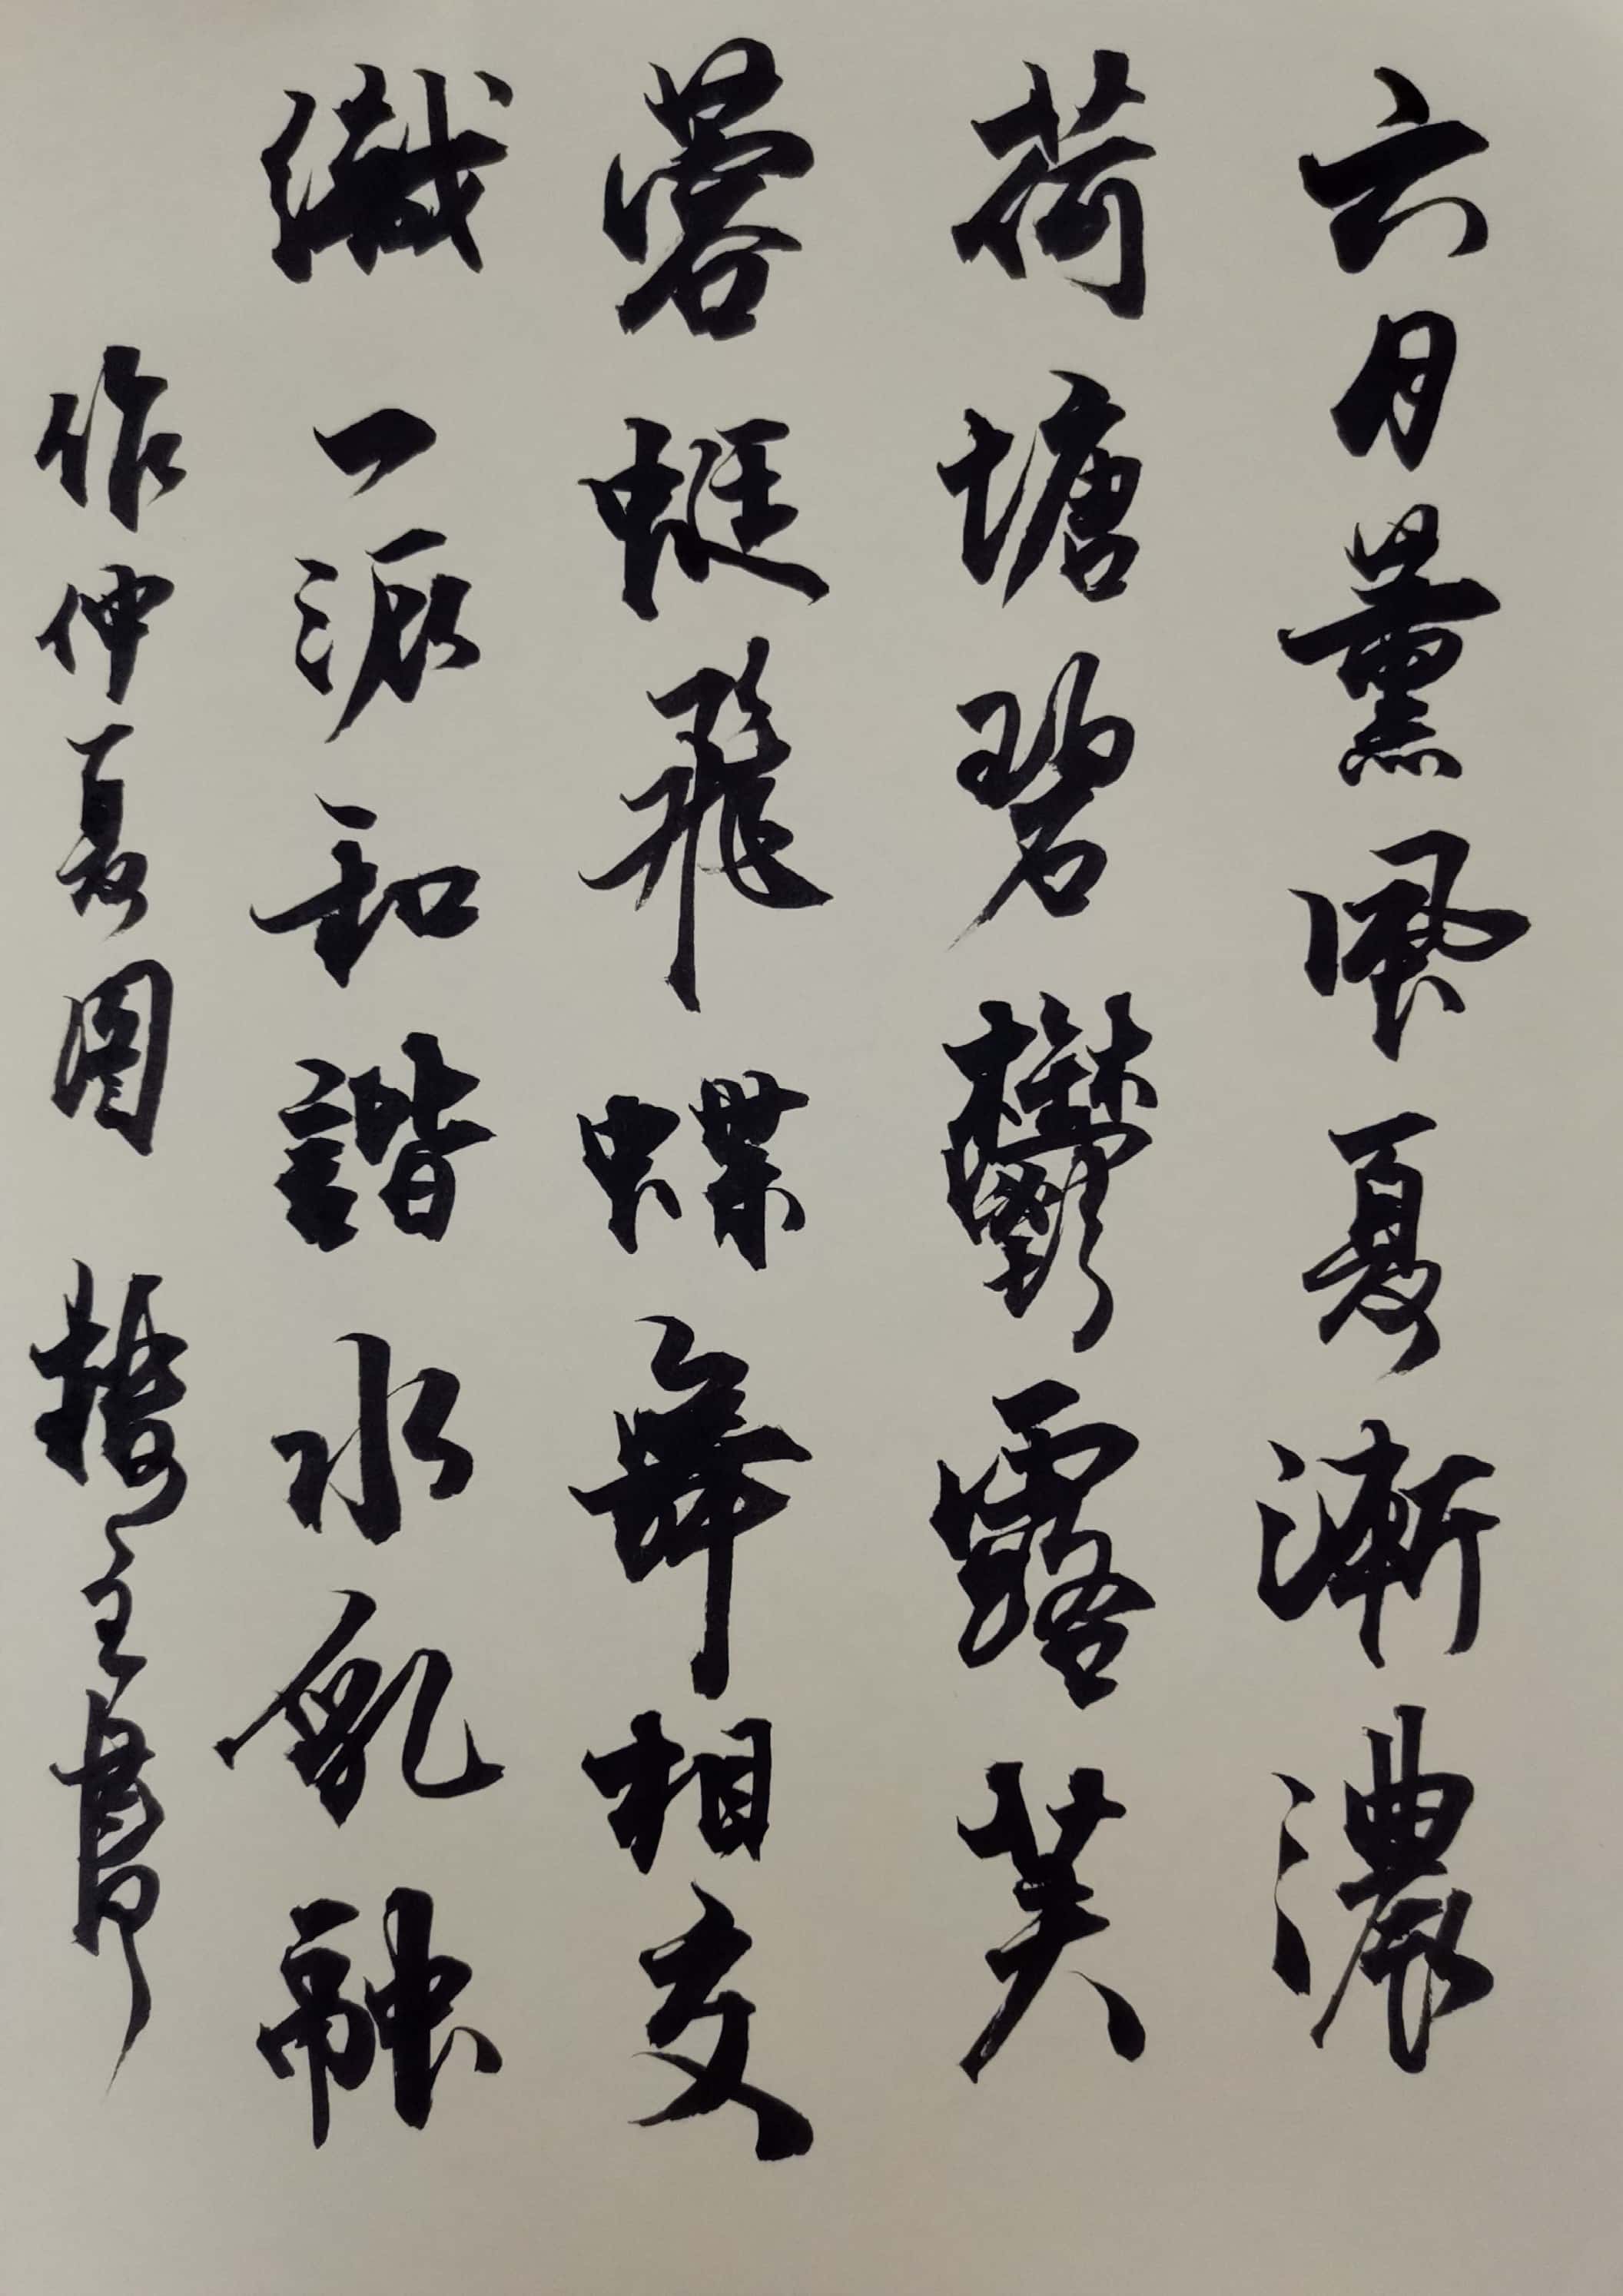 六月薰風夏漸濃
荷塘碧鬱露芙
蓉蜓飛蝶舞相交
織一派和諧水乳融
作仲夏圖 主書